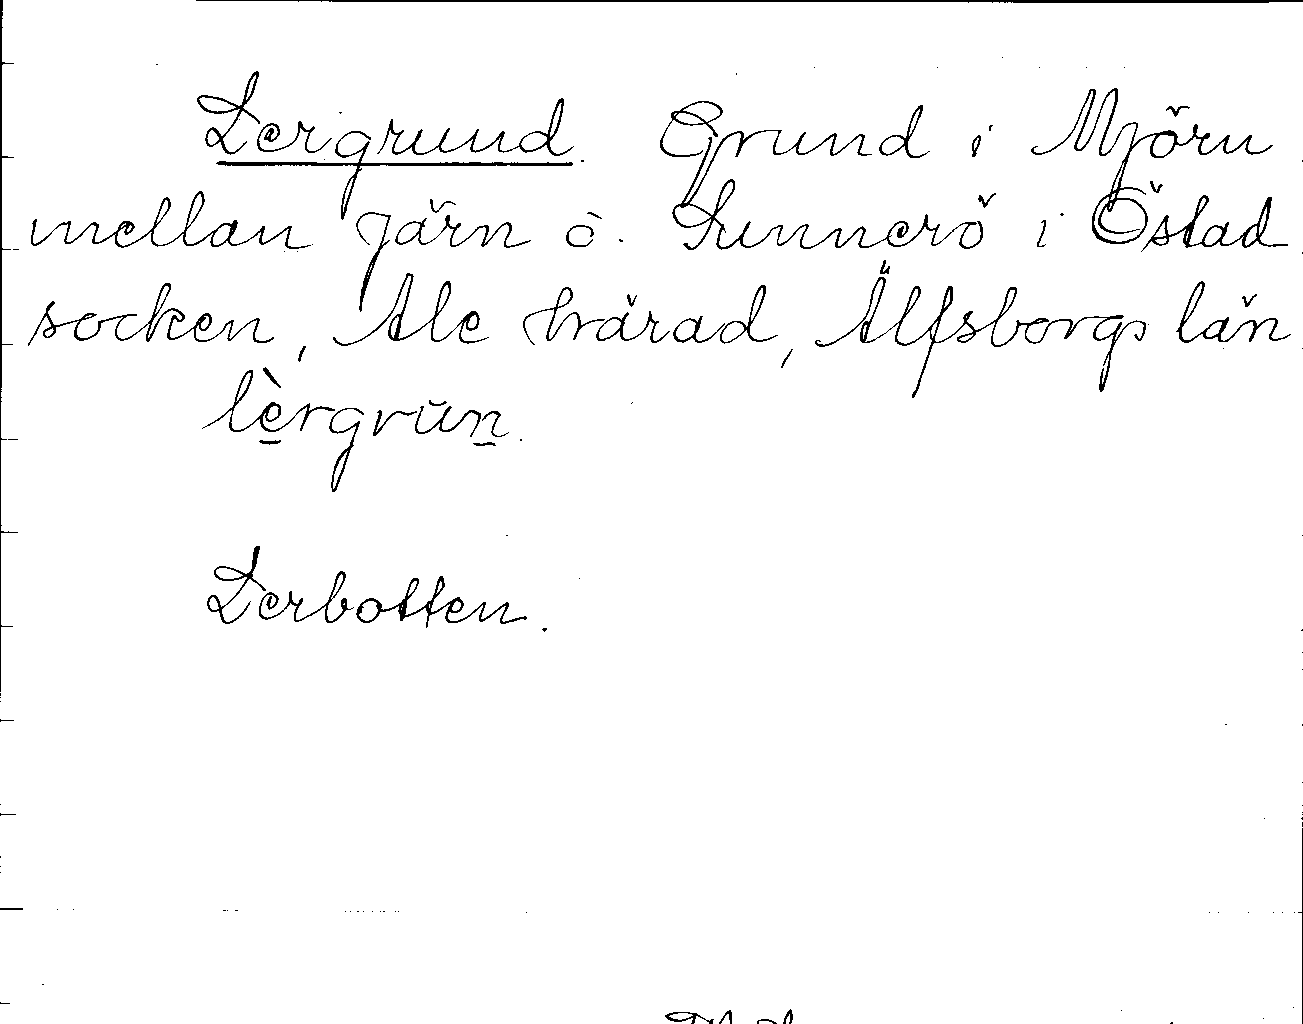 Lergrund. Grund i Mjörn
mellan Järn o. Sunnerö i Östad
socken, Ale härad, Älfsborgs län
lèrgrun.
Lerbotten.